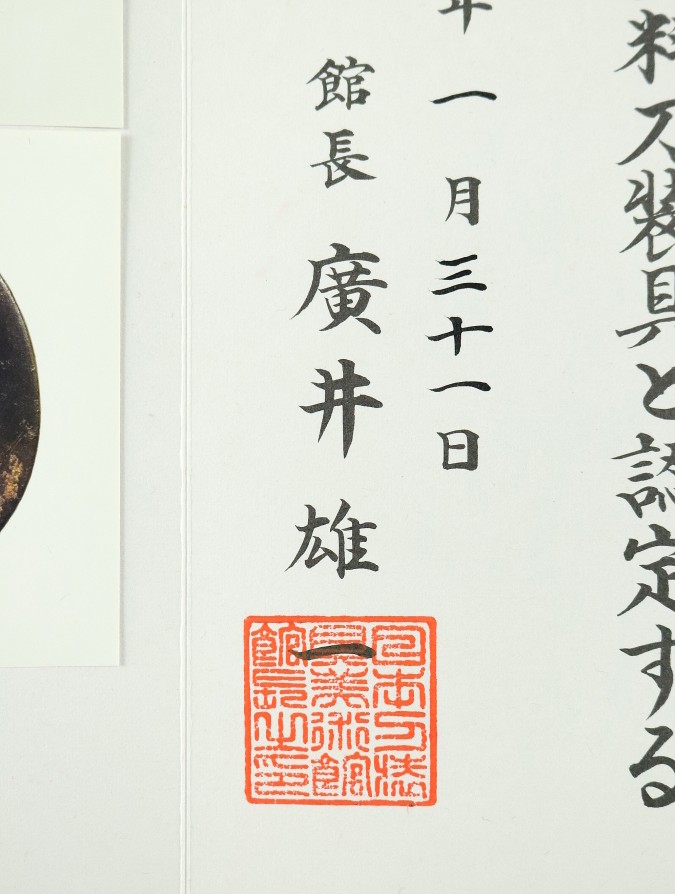 料刀装具と認定する
年一月三十一日
館長 廣井雄一
日本刀装
具美術館
館長之印